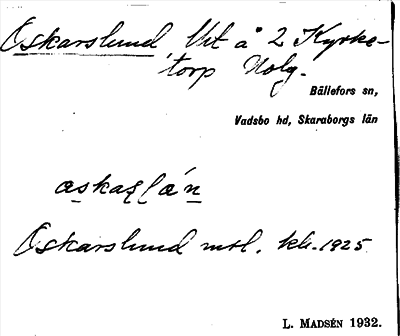 Oskarslund, Utå 2 Kyrke-
torp Holg.
Bällefors sn,
Vadsbo hd, Skaraborgs län
Oskarslund mtl. kb. 1925
L. MADSÉN 1932.